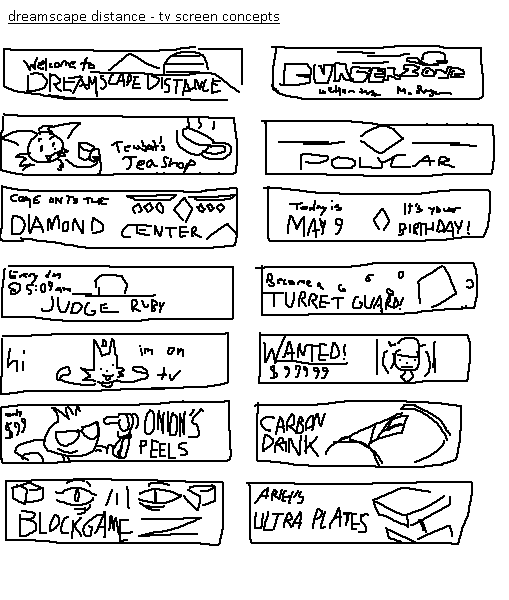 dreamscape distance - tv screen concepts
Welcome to
DREAMSCAPE DISTANCE
BURGERZONE
Teubat's
Tea Shop
POLYCAR
COME ON TO THE
DIAMOND
CENTER
Today is
MAY 9
It's your
BIRTHDAY!
Every day
@ 5:09 am
JUDGE RUBY
Become a
TURRET GUARD!
hi
im on
tv
WANTED!
$99999
only
$99
ONION'S
PEELS
CARBON
DRINK
BLOCKGAME
ARIEL'S
ULTRA PLATES